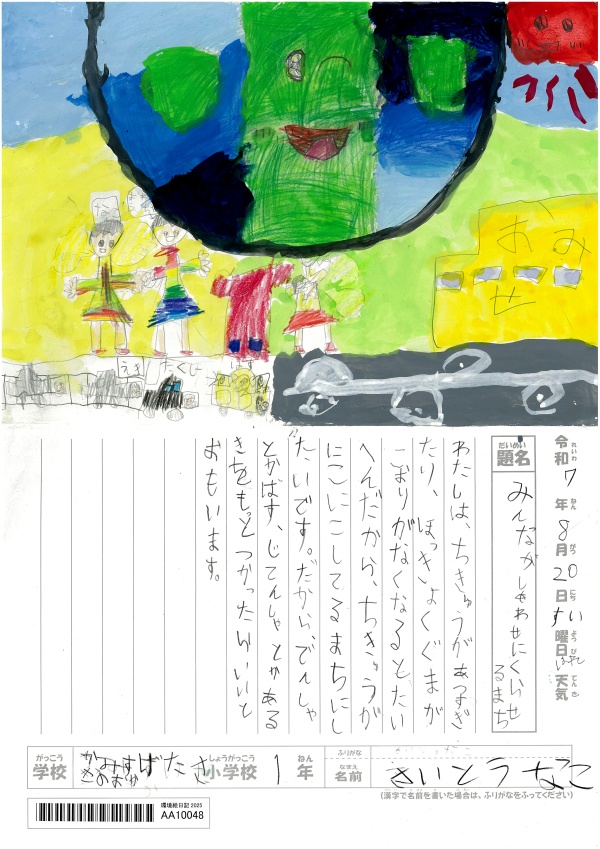 おみせ
えき
たくしー
令和7年8月20日すい曜日 天気
題名 みんながしあわせにくらせ
るまち
わたしは、ちきゅうがあつすぎ
たり、ほっきょくぐまが
こおりがなくなるとたい
へんだから、ちきゅうが
にこにこしてるまちにし
たいです。だから、でんしゃ
とかばす、じてんしゃとかある
きをもっとつかったらいいと
おもいます。
学校 小学校 1年
ふりがな
名前 さいとうなこ
(漢字で名前を書いた場合は、ふりがなをふってください)
環境絵日記 2025
AA10048